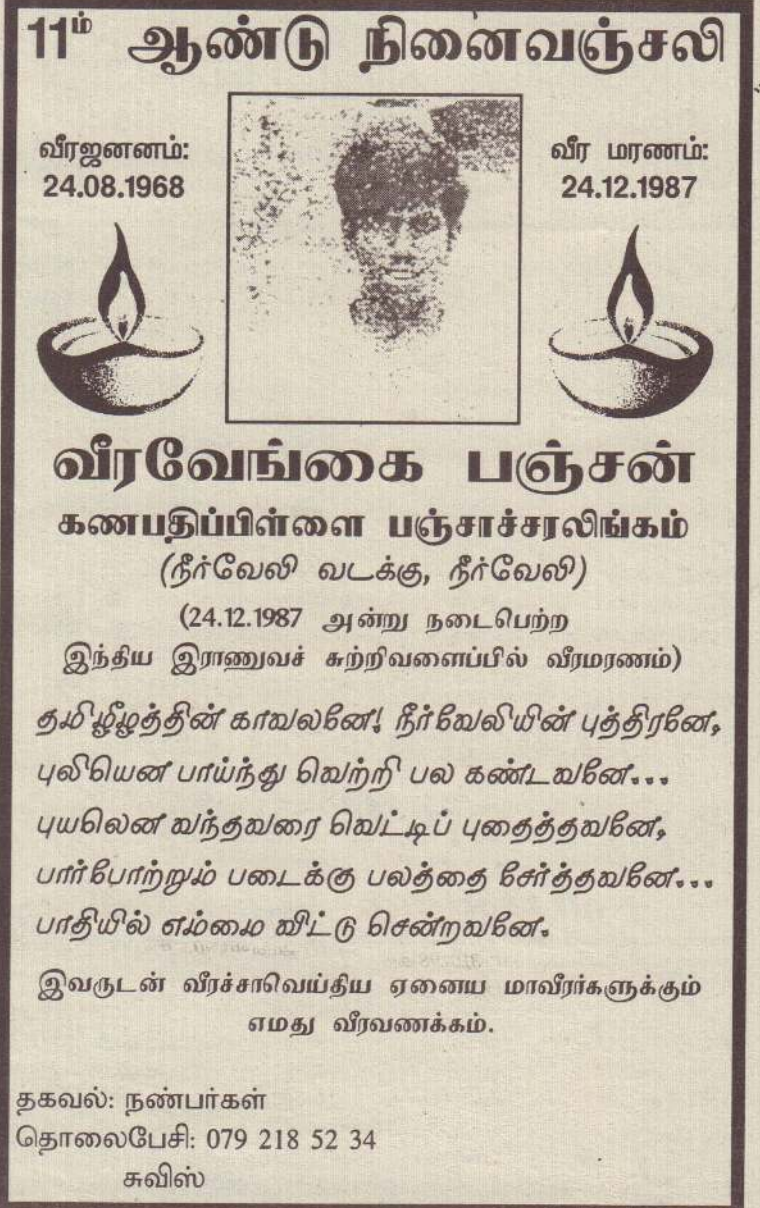 11ம் ஆண்டு நினைவஞ்சலி
வீரஜனனம்:
24.08.1968
வீர மரணம்:
24.12.1987
வீரவேங்கை பஞ்சன்
கணபதிப்பிள்ளை பஞ்சாச்சரலிங்கம்
(நீர்வேலி வடக்கு, நீர்வேலி)
(24.12.1987 அன்று நடைபெற்ற
இந்திய இராணுவச் சுற்றிவளைப்பில் வீரமரணம்)
தமிழீழத்தின் காவலனே! நீர்வேலியின் புத்திரனே,
புலியென பாய்ந்து வெற்றி பல கண்டவனே...
புயலென வந்தவரை வெட்டிப் புதைத்தவனே,
பார்போற்றும் படைக்கு பலத்தை சேர்த்தவனே...
பாதியில் எம்மை விட்டு சென்றவனே.
இவருடன் வீரச்சாவெய்திய ஏனைய மாவீரர்களுக்கும்
எமது வீரவணக்கம்.
தகவல்: நண்பர்கள்
தொலைபேசி: 079 218 52 34
சுவிஸ்